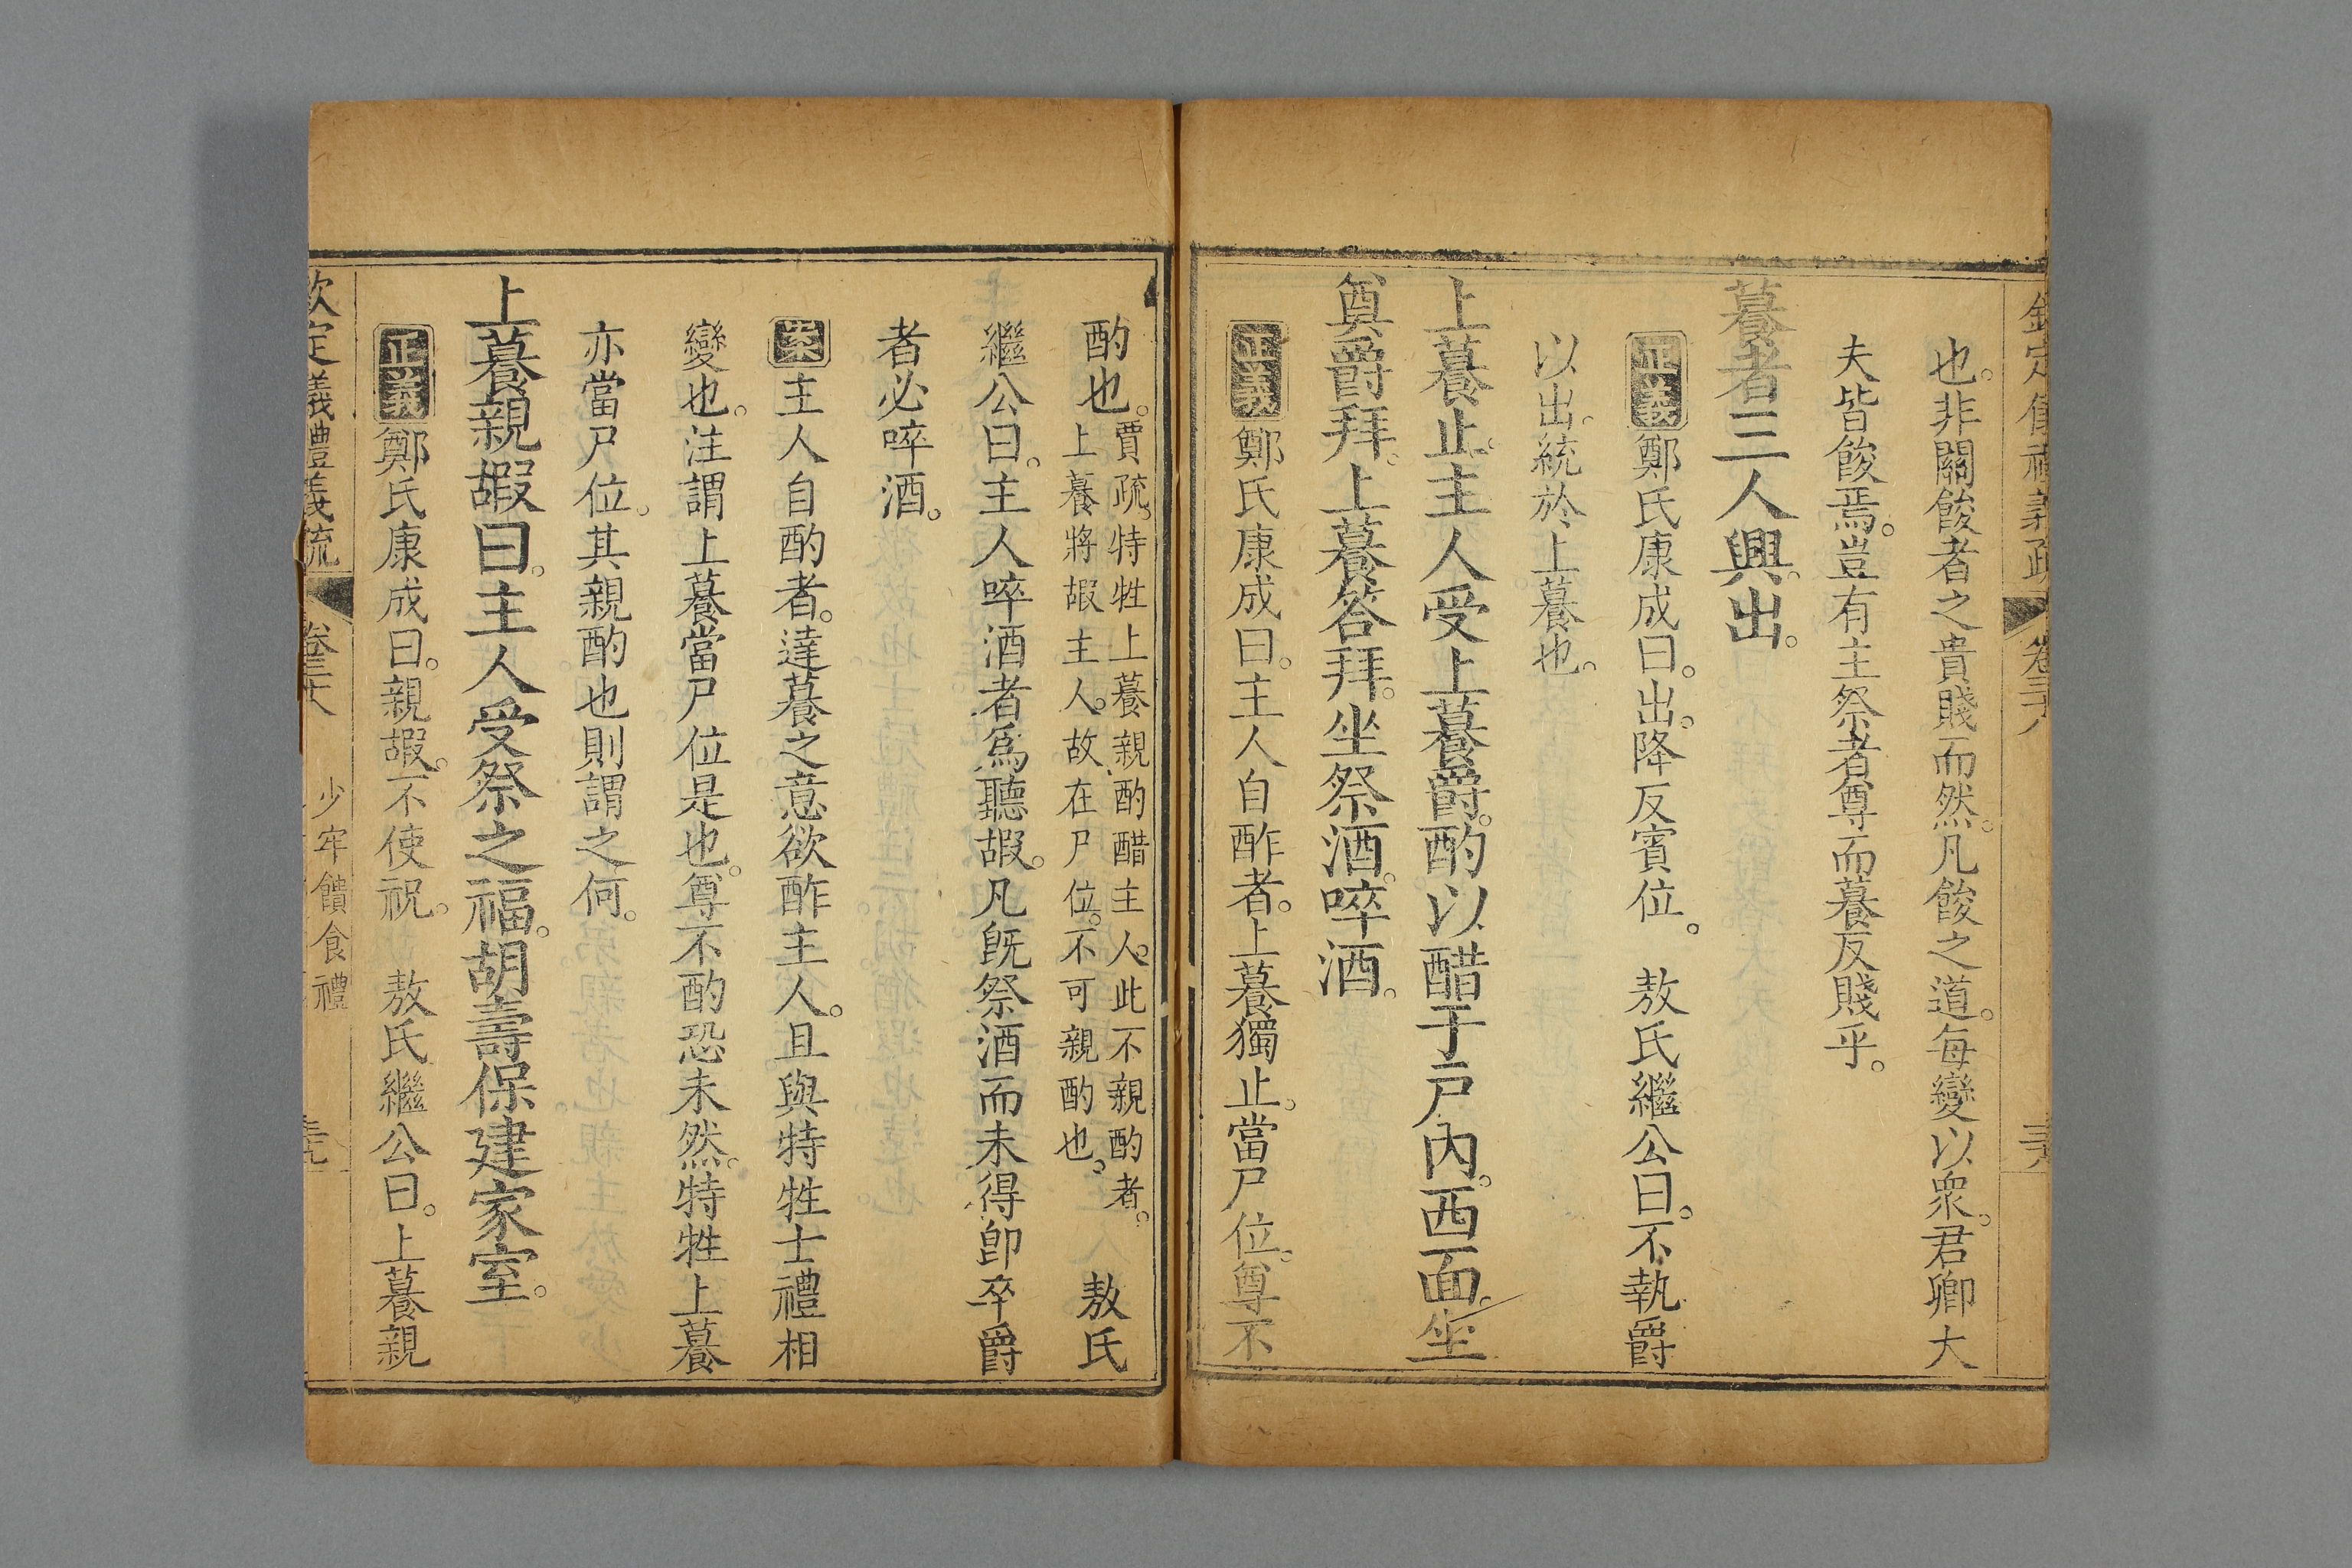 欽定儀禮義疏 卷三十八 三十八
也。非關餕者之貴賤而然。凡餕之道。每變以衆。君卿大
夫皆餕焉。豈有主祭者尊而䭕反賤乎。
䭕者三人興。出。
正義鄭氏康成曰。出。降反賓位。 敖氏繼公曰。不執爵
以出。統於上䭕也。
上䭕止。主人受上䭕爵。酌以醋于戶內。西面。坐
奠爵拜。上䭕答拜。坐祭酒。啐酒。
正義鄭氏康成曰。主人自酢者。上䭕獨止。當尸位。尊不
酌也。賈疏。特牲上䭕親酌醋主人。此不親酌者。
上䭕將嘏主人。故在尸位。不可親酌也。 敖氏
繼公曰。主人啐酒者爲聽嘏。凡旣祭酒而未得卽卒爵
者必啐酒。
案主人自酌者。達䭕之意欲酢主人。且與特牲士禮相
變也。注謂上䭕當尸位是也。尊不酌恐未然。特牲上䭕
亦當尸位。其親酌也則謂之何。
上䭕親嘏曰。主人受祭之福。胡壽保建家室。
正義鄭氏康成曰。親嘏。不使祝。 敖氏繼公曰。上䭕親
欽定儀禮義疏 卷三十八 少牢饋食禮 三十九